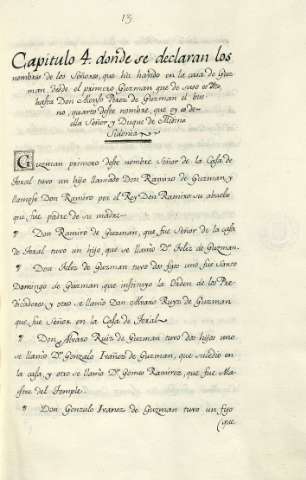 13
Capitulo 4. donde se declaran los
nombres de los Señores, que há havido en la casa de Guz
man desde el primero Guzman que de suso es dho
hasta Don Alonso Perez de Guzman el bue
no, quarto deste nombre, que oy es de
ella Señor y Duque de Medina
Sidonia
Guzman primero deste nombre Señor de la Casa de
Toral tuvo un hijo llamado Don Ramiro de Guzman, y
llamose Don Ramiro por el Rey Don Ramiro su abuelo
que fue padre de su madre.
Don Ramiro de Guzman, que fue Señor de la casa
de Toral tuvo un hijo, que se llamo Dn Felez de Guzman.
Don Felez de Guzman tuvo dos fijos uno fue Santo
Domingo de Guzman que instituyo la Orden de los Pre
dicadores, y otro se llamo Don Alvaro Ruyz de Guzman
que fue Señor en la Casa de Toral.
Don Alvaro Ruiz de Guzman tuvo dos hijos uno
se llamo Dn Gonzalo Ivañez de Guzman, que sucedio en
la casa, y otro se llamo Dn Gomez Ramirez, que fue Ma
estre del Temple.
Don Gonzalo Ivanez de Guzman tuvo un fijo
(que